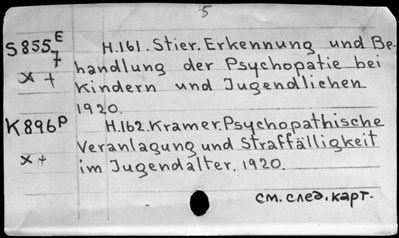 5
S855E/7 H.161. Stier. Erkennung und Be-
x + handlung der Psychopatie bei
Kindern und Jugendlichen
1920.
K896P H.162. Kramer. Psychopathische
x + Veranlagung und Straffälligkeit
im Jugendalter. 1920.
см. след. карт.